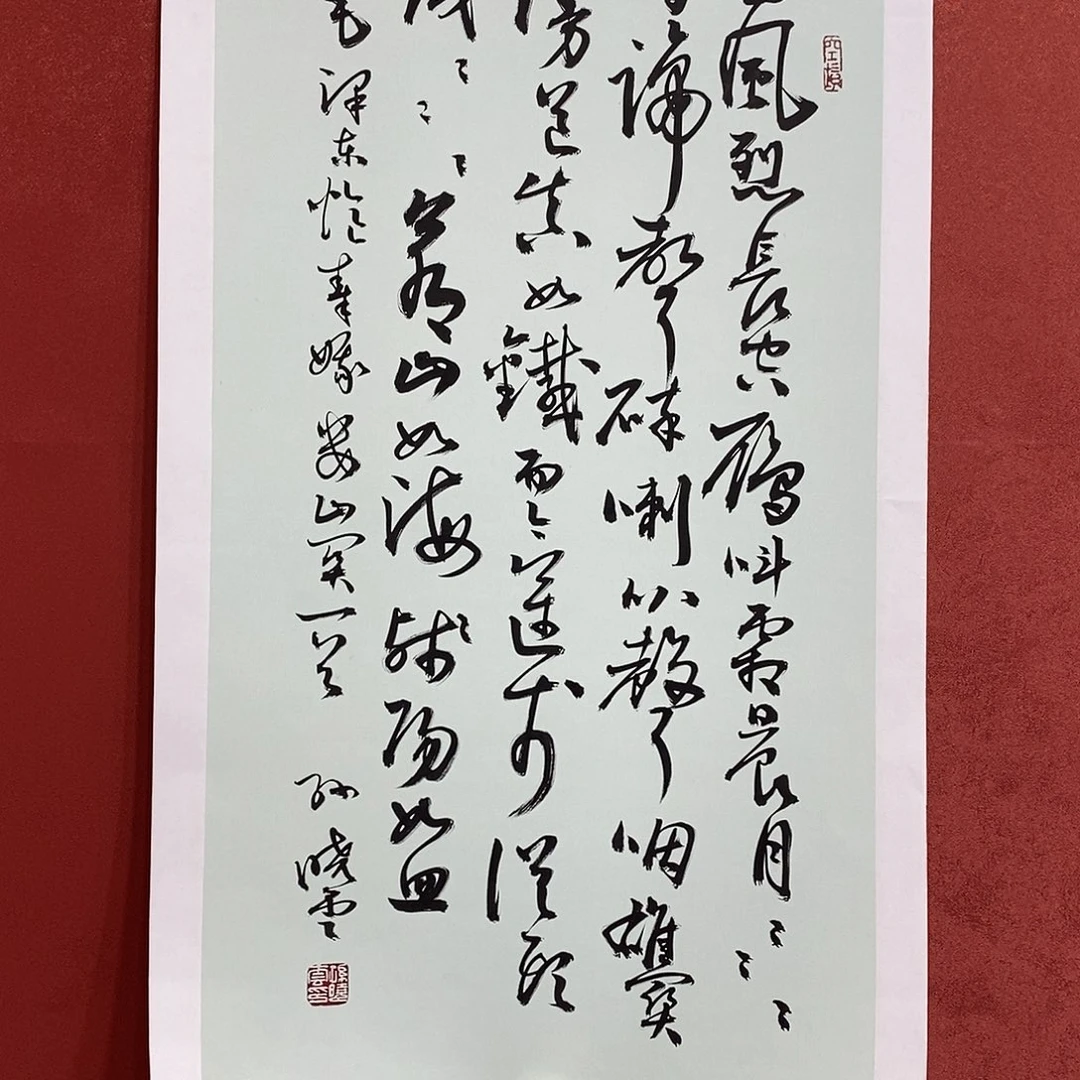 風烈長空鴈叫霜晨月〻〻〻
蹄聲碎喇叭聲咽雄關
道真如鐵而今邁步從頭
〻〻〻蒼山如海殘陽如血
毛澤東憶秦娥婁山關一首
孫曉雲